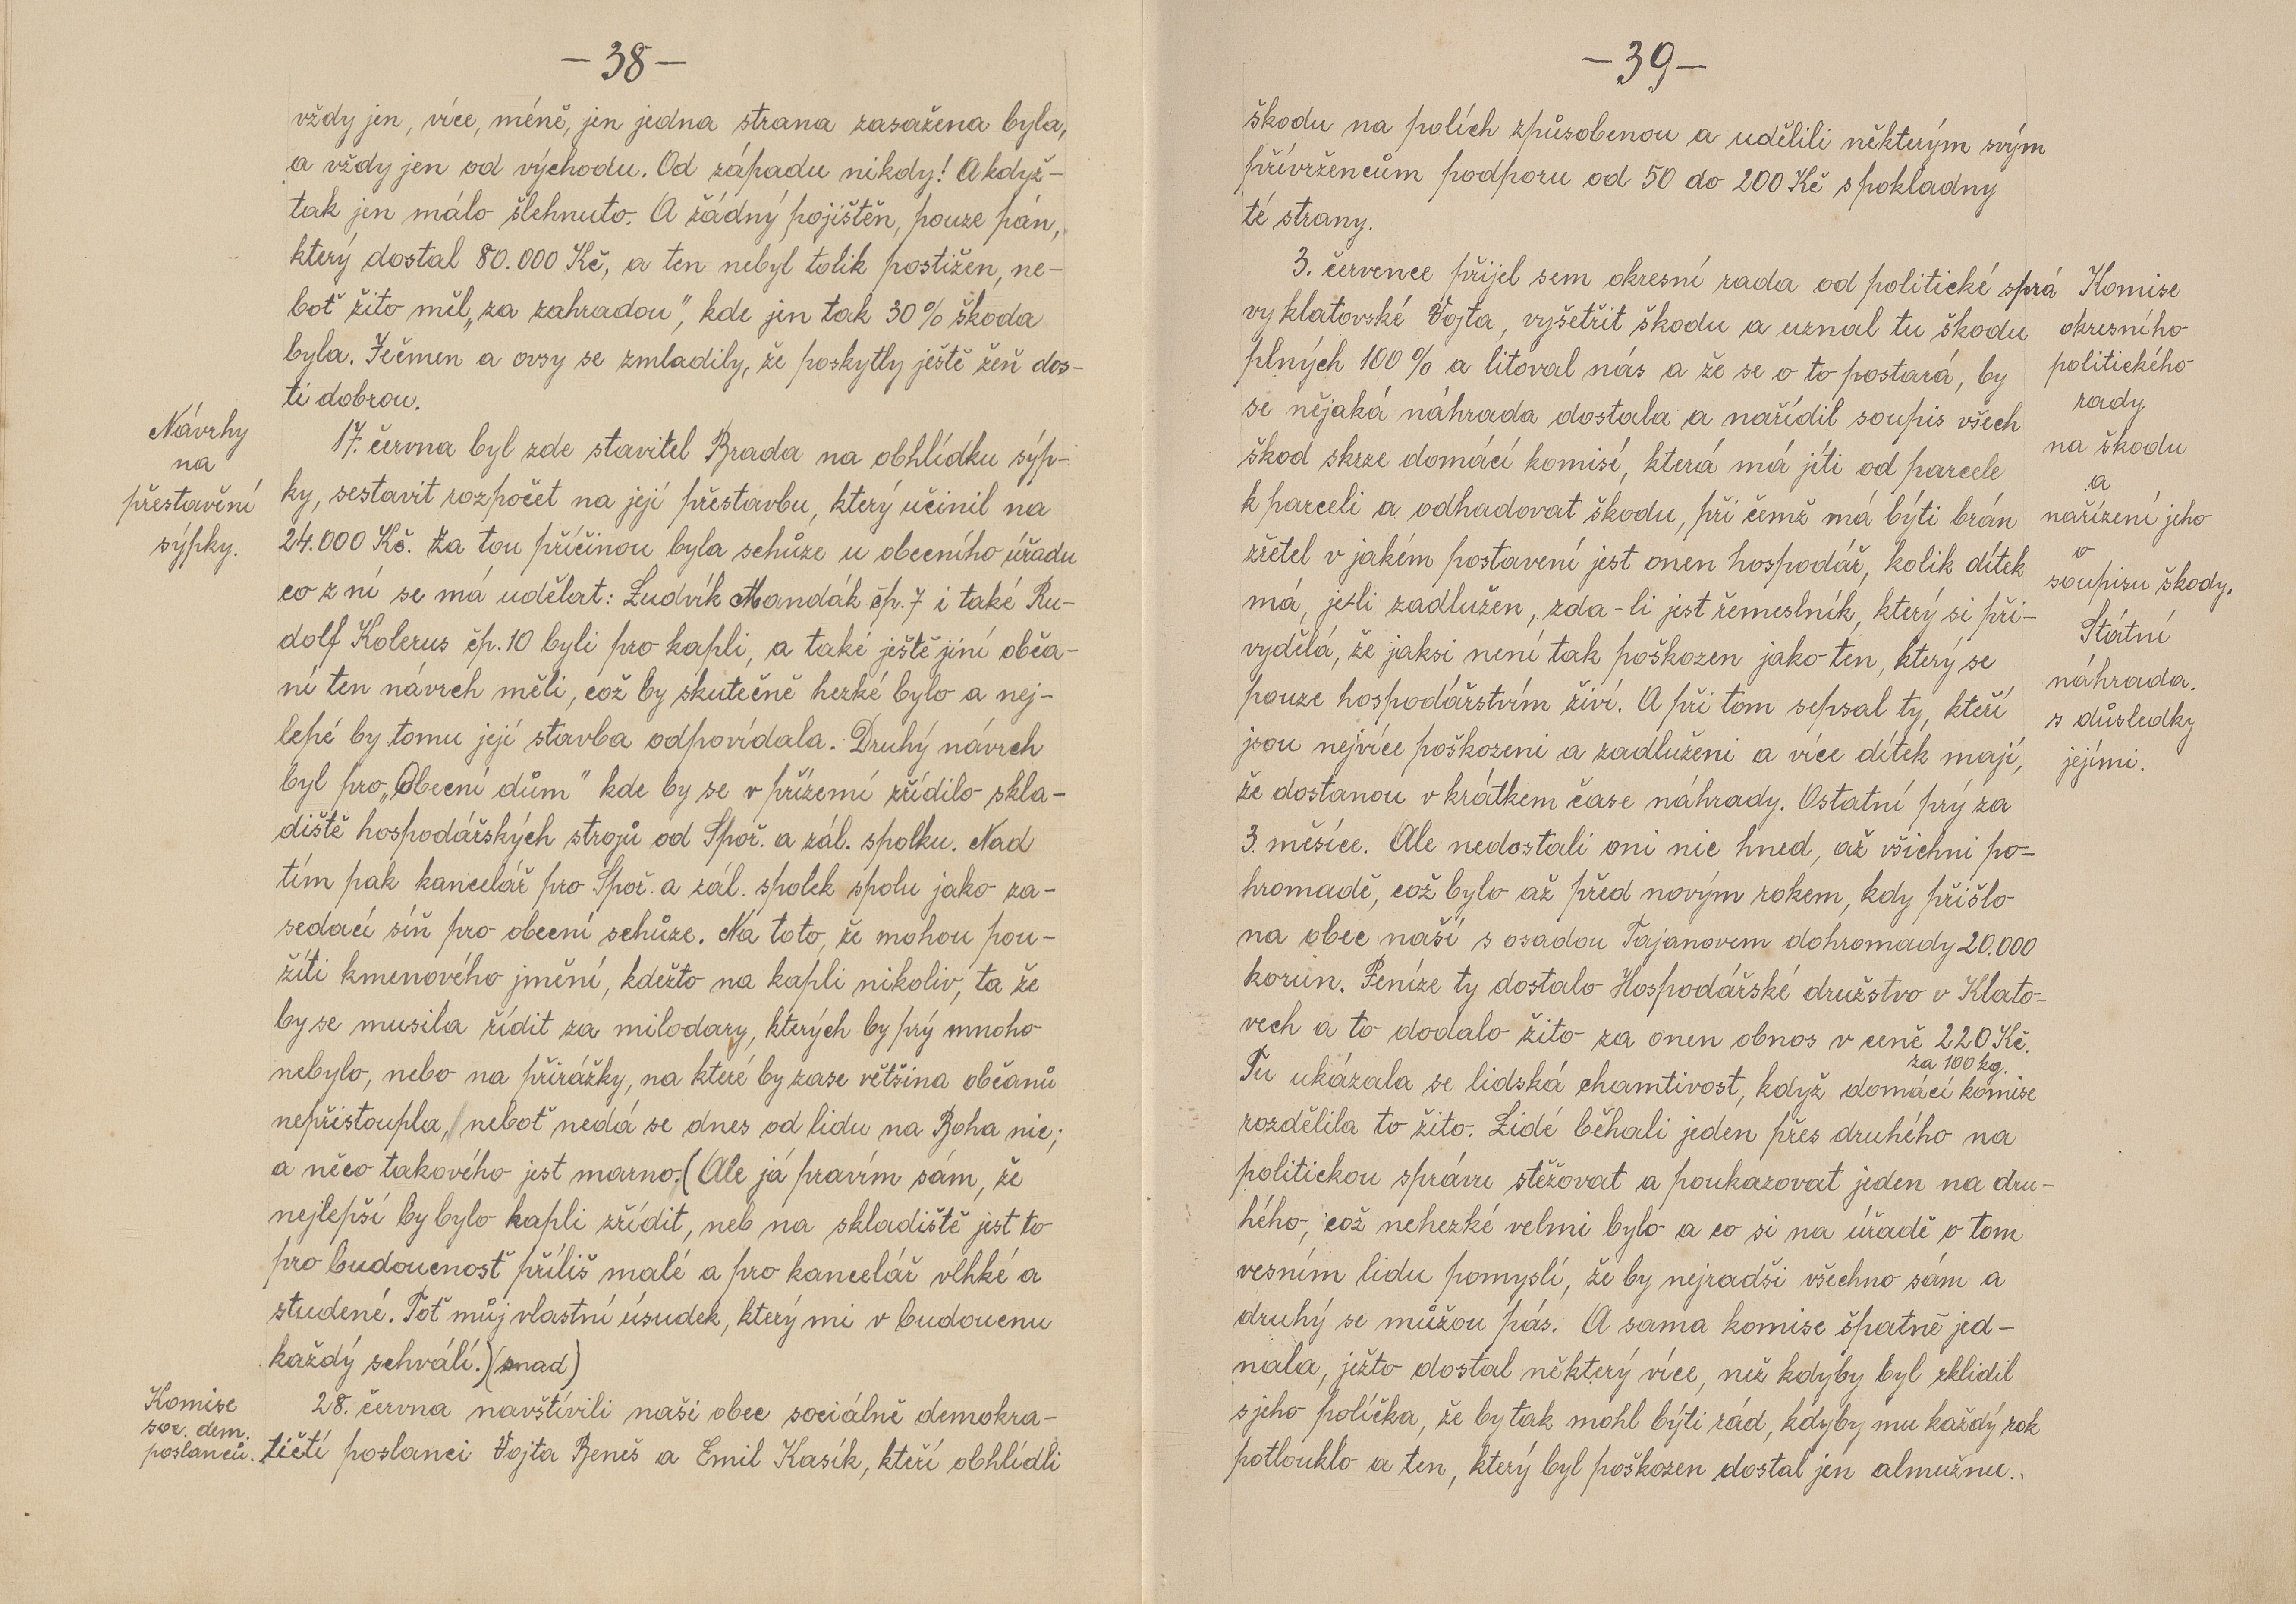 — 38 —
vždy jen, více, méně, jen jedna strana zasažena byla,
a vždy jen od východu. Od západu nikdy! A když-
tak jen málo šlehnuto. A žádný pojištěn, pouze pán,
který dostal 80.000 Kč, a ten nebyl tolik postižen, ne-
boť žito měl „za zahradou“, kde jen tak 30% škoda
byla. Ječmen a ovsy se zmladily, že poskytly ještě žeň dos-
ti dobrou.
Návrhy
na
přestavění
sýpky.
17. června byl zde stavitel Brada na obhlídku sýp-
ky, sestavit rozpočet na její přestavbu, který učinil na
24.000 Kč. Za tou příčinou byla schůze u obecního úřadu
co z ní se má udělat: Ludvík Mandák čp. 7 i také Ru-
dolf Kolerus čp. 10 byli pro kapli, a také ještě jiní obča-
ní ten návrch měli, což by skutečně hezké bylo a nej-
lepé by tomu její stavba odpovídala. Druhý návrch
byl pro „Obecní dům“ kde by se v přízemí zřídilo skla-
diště hospodářských strojů od Spoř. a zál. spolku. Nad
tím pak kancelář pro Spoř. a zál. spolek spolu jako za-
sedací síň pro obecní schůze. Na toto, že mohou pou-
žíti kmenového jmění, kdežto na kapli nikoliv, ta že
by se musila řídit za milodary, kterých by prý mnoho
nebylo, nebo na přirážky, na které by zase většina občanů
nepřistoupla, neboť nedá se dnes od lidu na Boha nic;
a něco takového jest marno. (Ale já pravím sám, že
nejlepší by bylo kapli zřídit, neb na skladiště jest to
pro budoucnosť příliš malé a pro kancelář vlhké a
studené. Toť můj vlastní úsudek, který mi v budoucnu
každý schválí.) (snad)
Komise
soc. dem.
poslanců.
28. června navštívili naši obec sociálně demokra-
tičtí poslanci Vojta Beneš a Emil Kasík, kteří obhlídli
— 39 —
škodu na polích způsobenou a udělili některým svým
přívržencům podporu od 50 do 200 Kč s pokladny
té strany.
3. července přijel sem okresní rada od politické sprá
vy klatovské Vojta, vyšetřit škodu a uznal tu škodu
plných 100% a litoval nás a že se o to postará, by
se nějaká náhrada dostala a nařídil soupis všech
škod skrze domácí komisí, která má jíti od parcele
k parceli a odhadovat škodu, při čemž má býti brán
zřetel v jakém postavení jest onen hospodář, kolik dítek
má, je-li zadlužen, zda-li jest řemeslník, který si při-
vydělá, že jaksi není tak poškozen jako ten, který se
pouze hospodářstvím živí. A při tom sepsal ty, kteří
jsou nejvíce poškozeni a zadluženi a více dítek mají,
že dostanou v krátkem čase náhrady. Ostatní prý za
3. měsíce. Ale nedostali oni nic hned, až všichni po-
hromadě, což bylo až před novým rokem, kdy přišlo
na obec naší s osadou Tajanovem dohromady 20.000
korun. Peníze ty dostalo Hospodářské družstvo v Klato-
vech a to dodalo žito za onen obnos v ceně 220 Kč.
za 100 kg.
Tu ukázala se lidská chamtivost, když domácí komise
rozdělila to žito. Lidé běhali jeden přes druhého na
politickou správu stěžovat a poukazovat jeden na dru-
hého, což nehezké velmi bylo a co si na úřadě o tom
vesním lidu pomyslí, že by nejradši všechno sám a
druhý se můžou pás. A sama komise špatně jed-
nala, ježto dostal některý více, než kdyby byl sklidil
s jeho políčka, že by tak mohl býti rád, kdyby mu každý rok
potlouklo a ten, který byl poškozen dostal jen almužnu..
Komise
okresního
politického
rady
na škodu
a
nařízení jeho
o
soupisu škody.
Státní
náhrada.
s důsledky
jejími.